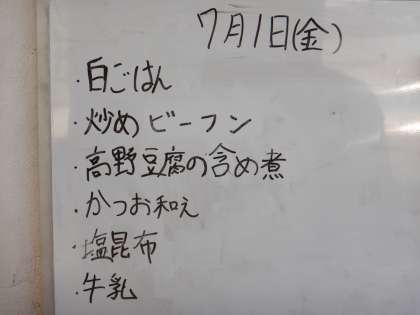 7月1日(金)
・白ごはん
・炒めビーフン
・高野豆腐の含め煮
・かつお和え
・塩昆布
・牛乳